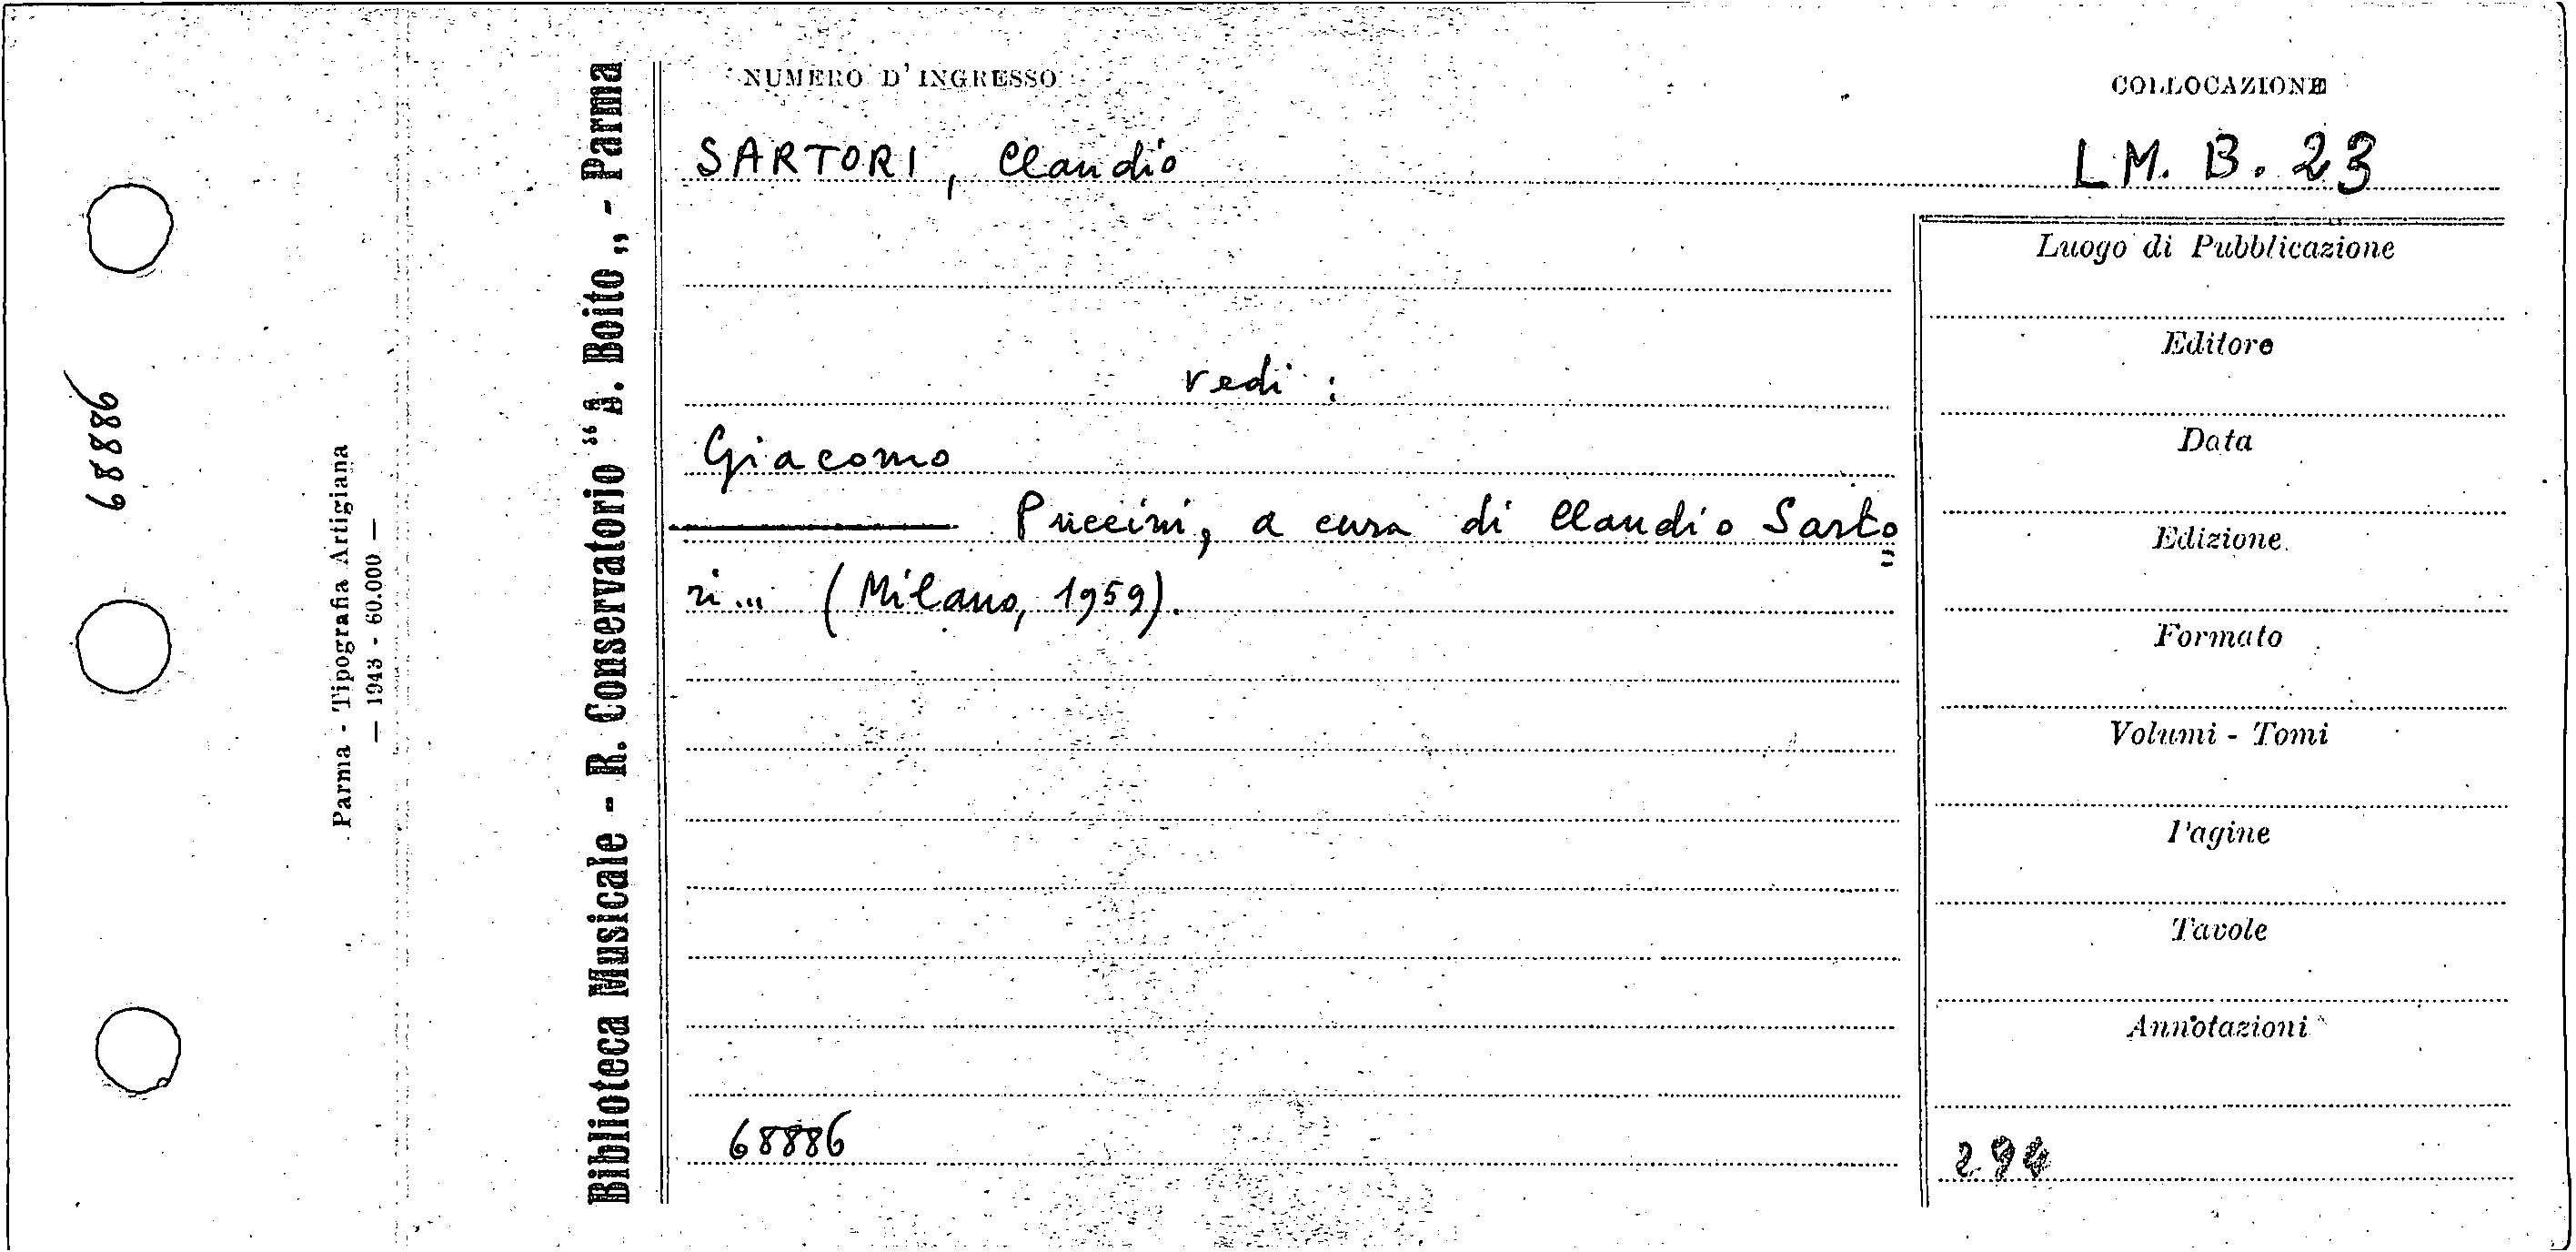 68886
Parma - Tipografia Artigiana
— 1943 - 60.000 —
Biblioteca Musicale - R. Conservatorio “A. Boito„ - Parma
NUMERO D'INGRESSO
COLLOCAZIONE
SARTORI, Claudio
LM. B. 23
vedi :
Giacomo
Puccini, a cura di Claudio Sarto=
ri... (Milano, 1959).
68886
Luogo di Pubblicazione
Editore
Data
Edizione
Formato
Volumi - Tomi
Pagine
Tavole
Annotazioni
294